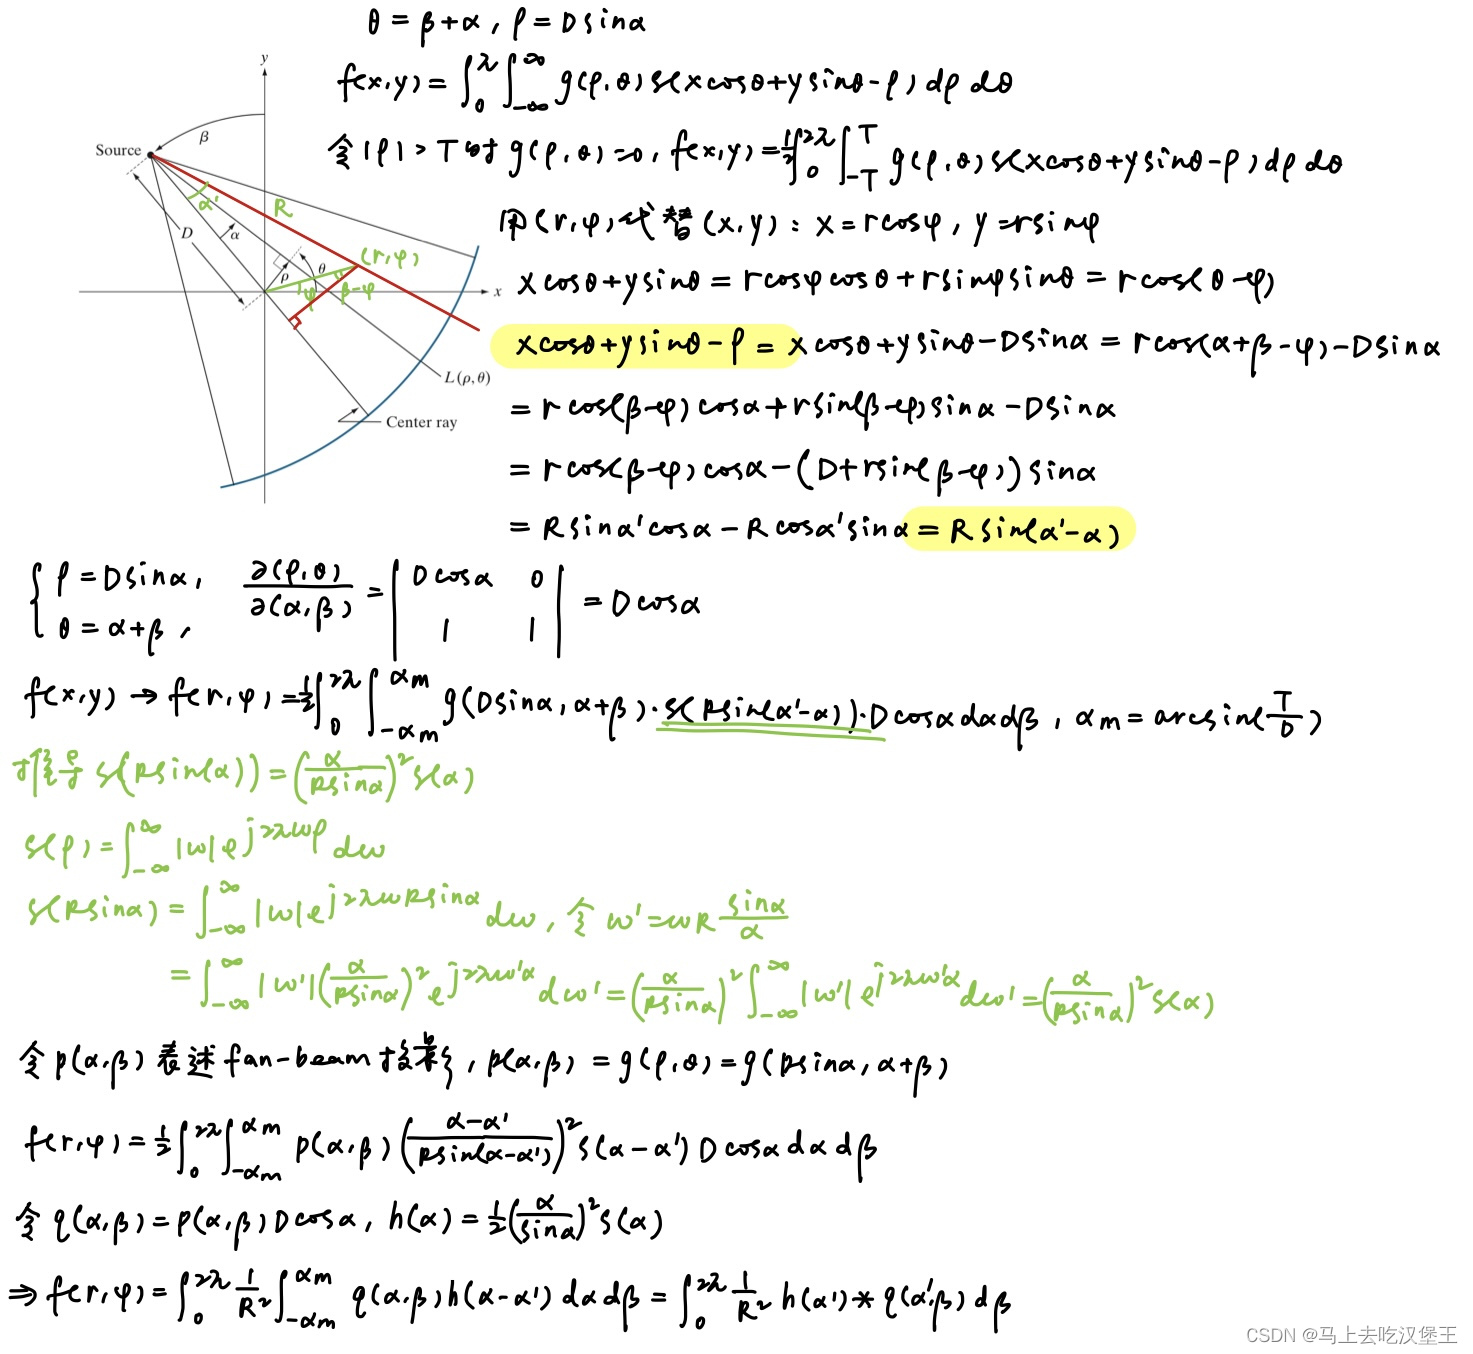 θ = β+α , ρ = Dsinα
f(x,y) = ∫_0^π ∫_{-∞}^{∞} g(ρ,θ) s(xcosθ+ysinθ-ρ) dρ dθ
令|ρ|>T时 g(ρ,θ)=0, f(x,y)=½∫_0^{2π} ∫_{-T}^{T} g(ρ,θ) s(xcosθ+ysinθ-ρ) dρ dθ
用(r,φ)代替(x,y): x=rcosφ, y=rsinφ
xcosθ+ysinθ = rcosφcosθ+rsinφsinθ = rcos(θ-φ)
xcosθ+ysinθ-ρ = xcosθ+ysinθ-Dsinα = rcos(α+β-φ)-Dsinα
= rcos(β-φ)cosα+rsin(β-φ)sinα-Dsinα
= rcos(β-φ)cosα-(D+rsin(β-φ))sinα
= Rsinα'cosα-Rcosα'sinα = Rsin(α'-α)
y
β
Source
α'
R
D
α
ρ
θ
(r,φ)
φ
β-φ
x
L(ρ, θ)
Center ray
{ ρ=Dsinα, θ=α+β, ∂(ρ,θ)/∂(α,β) = | Dcosα 0 ; 1 1 | = Dcosα
f(x,y) → f(r,φ)=½∫_0^{2π} ∫_{-αm}^{αm} g(Dsinα, α+β)·s(Rsin(α'-α))·Dcosαdαdβ, αm=arcsin(T/D)
推导 s(Rsin(α)) = (α/Rsinα)² s(α)
s(ρ) = ∫_{-∞}^{∞} |w|e^{j2πwρ} dw
s(Rsinα) = ∫_{-∞}^{∞} |w|e^{j2πwRsinα} dw, 令 w'=wR sinα/α
= ∫_{-∞}^{∞} |w'|(α/Rsinα)² e^{j2πw'α} dw' = (α/Rsinα)² ∫_{-∞}^{∞} |w'|e^{j2πw'α} dw' = (α/Rsinα)² s(α)
令 p(α,β) 表述 fan-beam 投影, p(α,β) = g(ρ,θ) = g(Dsinα, α+β)
f(r,φ) = ½∫_0^{2π} ∫_{-αm}^{αm} p(α,β) (α-α'/Rsin(α-α'))² s(α-α') D cosα dα dβ
令 q(α,β) = p(α,β) D cosα, h(α) = ½(α/sinα)² s(α)
⇒ f(r,φ) = ∫_0^{2π} 1/R² ∫_{-αm}^{αm} q(α,β)h(α-α') dα dβ = ∫_0^{2π} 1/R² h(α') * q(α',β) dβ
CSDN @马上去吃汉堡王